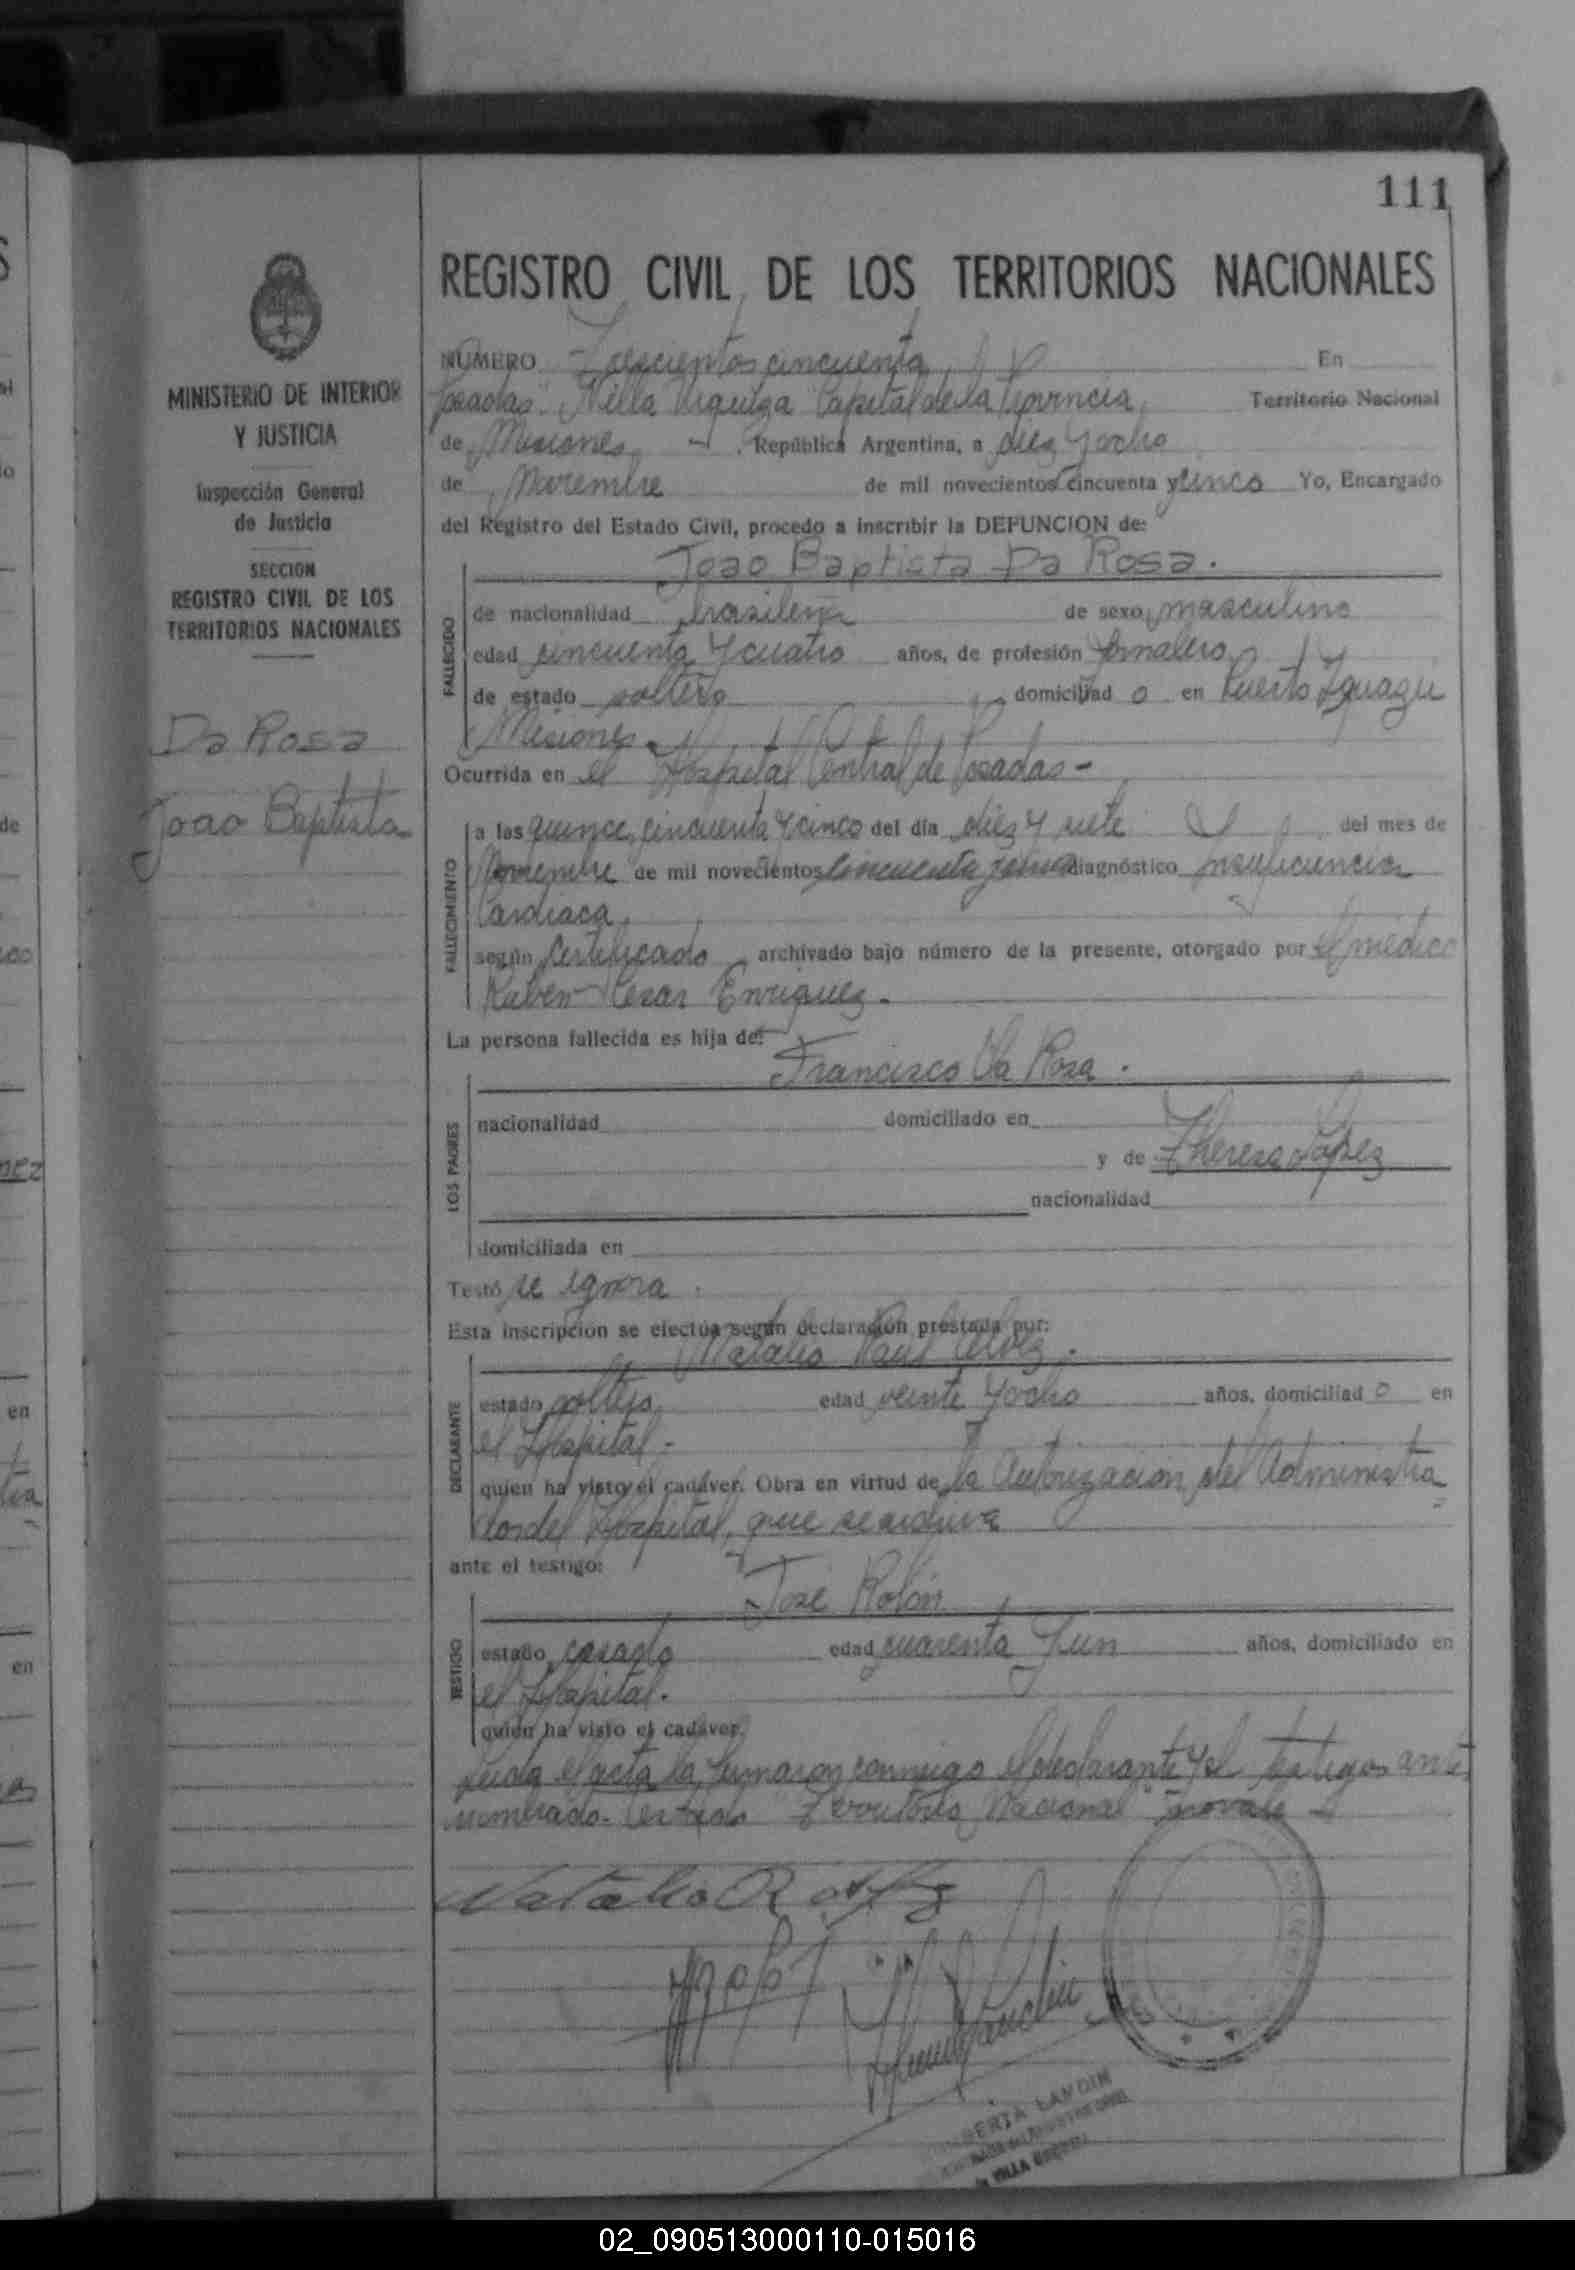 111
REGISTRO CIVIL DE LOS TERRITORIOS NACIONALES
MINISTERIO DE INTERIOR
Y JUSTICIA
Inspección General
de Justicia
SECCION
REGISTRO CIVIL DE LOS
TERRITORIOS NACIONALES
Da Rosa
Joao Baptista
NÚMERO Trescientos cincuenta En
Posadas "Villa Urquiza" Capital de la Provincia Territorio Nacional
de Misiones República Argentina, a diez y ocho
de Noviembre de mil novecientos cincuenta y cinco Yo, Encargado
del Registro del Estado Civil, procedo a inscribir la DEFUNCION de:
Joao Baptista Da Rosa.
FALLECIDO
de nacionalidad brasileña de sexo masculino
edad cincuenta y cuatro años, de profesión jornalero
de estado soltero domiciliad o en Puerto Iguazu
Misiones.
Ocurrida en el Hospital Central de Posadas -
FALLECIMIENTO
a las quince, cincuenta y cinco del día diez y siete del mes de
Noviembre de mil novecientos cincuenta y cinco diagnóstico Insuficiencia
Cardiaca.
según Certificado archivado bajo número de la presente, otorgado por el médico
Ruben Cesar Enriquez.
La persona fallecida es hija de:
Francisco Da Rosa.
LOS PADRES
nacionalidad domiciliado en
y de Thereza Lopez
nacionalidad
domiciliada en
Testó se ignora.
Esta inscripción se efectúa según declaración prestada por:
Natalio Raul
DECLARANTE
estado soltero edad veinte y ocho años, domiciliad o en
el Hospital.-
quien ha visto el cadáver. Obra en virtud de la Autorizacion del Administra
dor del Hospital, que se archiva
ante el testigo:
José Rolón
TESTIGO
estado casado edad cuarenta y un años, domiciliado en
el Hospital.
quien ha visto el cadáver.
Leida el acta la firmaron conmigo el declarante y el testigo ante
nombrado. Testado "Territorio Nacional" no vale -
Natalio R
LANDIN
VILLA
02_090513000110-015016